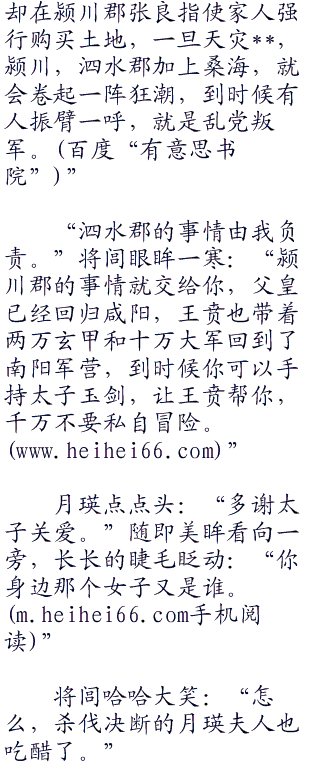 却在颍川郡张良指使家人强
行购买土地，一旦天灾**，
颍川，泗水郡加上桑海，就
会卷起一阵狂潮，到时候有
人振臂一呼，就是乱党叛
军。(百度“有意思书
院”)”
“泗水郡的事情由我负
责。”将闾眼眸一寒：“颍
川郡的事情就交给你，父皇
已经回归咸阳，王贲也带着
两万玄甲和十万大军回到了
南阳军营，到时候你可以手
持太子玉剑，让王贲帮你，
千万不要私自冒险。
(www.heihei66.com)”
月瑛点点头：“多谢太
子关爱。”随即美眸看向一
旁，长长的睫毛眨动：“你
身边那个女子又是谁。
(m.heihei66.com手机阅
读)”
将闾哈哈大笑：“怎
么，杀伐决断的月瑛夫人也
吃醋了。”